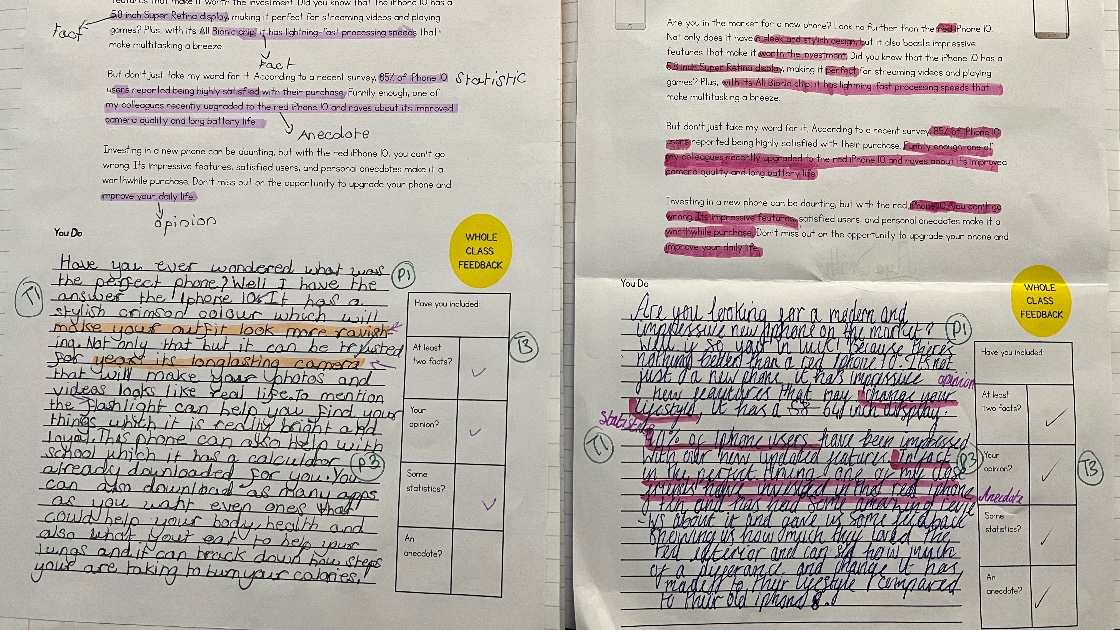 features that make it worth the investment. Did you know that the iPhone 10 has a
5.8 inch Super Retina display, making it perfect for streaming videos and playing
games? Plus, with its A11 Bionic chip, it has lightning-fast processing speeds that
make multitasking a breeze.
fact
fact
But don't just take my word for it. According to a recent survey, 85% of iPhone 10
users reported being highly satisfied with their purchase. Funnily enough, one of
my colleagues recently upgraded to the red iPhone 10 and raves about its improved
camera quality and long battery life.
Statistic
Anecdote
Investing in a new phone can be daunting, but with the red iPhone 10, you can't go
wrong. Its impressive features, satisfied users, and personal anecdotes make it a
worthwhile purchase. Don't miss out on the opportunity to upgrade your phone and
improve your daily life.
opinion
You Do
WHOLE
CLASS
FEEDBACK
P1
T1
Have you ever wondered what was
the perfect phone? Well I have the
answer the Iphone 10s It has a
stylish crimson colour which will
make your outfit look more ravish
ing. Not only that but it can be trusted
for years its longlasting camera
that will make your photos and
videos looks like real life. to mention
the flashlight can help you find your
things which it is really bright and
loyal. This phone can also help with
school which it has a calculator
already downloaded for you. You
can also download as many apps
as you want even ones that
could help your body, health and
also what your eat to help your
lungs and it can track down how steps
your are taking to burn your calories.
P3
T3
Have you included:
At least
two facts?
Your
opinion?
Some
statistics?
An
anecdote?
Are you in the market for a new phone? Look no further than the red iPhone 10.
Not only does it have a sleek and stylish design, but it also boasts impressive
features that make it worth the investment. Did you know that the iPhone 10 has a
5.8 inch Super Retina display, making it perfect for streaming videos and playing
games? Plus, with its A11 Bionic chip, it has lightning-fast processing speeds that
make multitasking a breeze.
But don't just take my word for it. According to a recent survey, 85% of iPhone 10
users reported being highly satisfied with their purchase. Funnily enough, one of
my colleagues recently upgraded to the red iPhone 10 and raves about its improved
camera quality and long battery life.
Investing in a new phone can be daunting, but with the red iPhone 10, you can't go
wrong. Its impressive features, satisfied users, and personal anecdotes make it a
worthwhile purchase. Don't miss out on the opportunity to upgrade your phone and
improve your daily life.
You Do
WHOLE
CLASS
FEEDBACK
Are you looking for a modern and
impressive new iphone on the market?
P1
Well if so your in luck! because there's
nothing better than a red iphone 10. It's not
just a new phone, it has impressive
opinion
new features that may change your
lifestyle, it has a 5.8 inch display.
Statistic
T1
90% of Iphone users have been impressed
with our new updated features. In fact
P3
friends have invested in the red iphone
Anecdote
and has had some amazing revie
-ws about it and gave us some feedback
showing us how much they loved the
red exterior and can see how much
of a differance and change it has
made to their lifestyle compared
to their old iphone 8.
Have you included:
At least
two facts?
Your
opinion?
T3
Some
statistics?
An
anecdote?